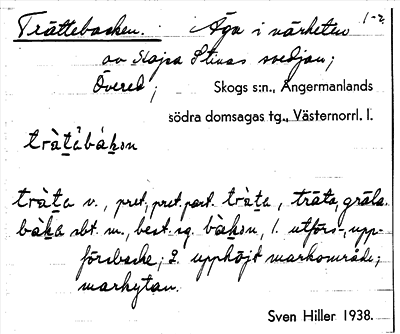 Trättebacken. Äga i närheten 1-2
av Kajsa Stinas svedjan;
Övered; Skogs s:n., Ångermanlands
södra domsagas tg., Västernorrl. l.
tràtabàkon
tràta v., pret., pret. part. tràta, träta, gräla.
bàka sbt. m., best. sg. bàkon, 1. utförs-, upp-
försbacke; 2. upphöjt markområde;
markytan.
Sven Hiller 1938.